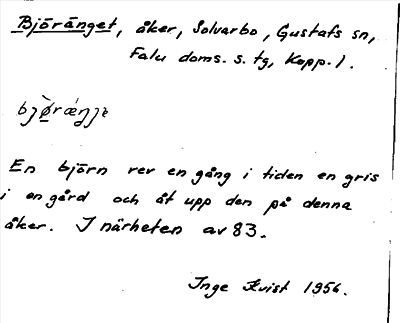 Björänget, åker, Solvarbo, Gustafs sn,
Falu doms. s. tg, Kopp. l.
En björn rev en gång i tiden en gris
i en gård och åt upp den på denna
åker. I närheten av 83.
Inge Kvist 1956.